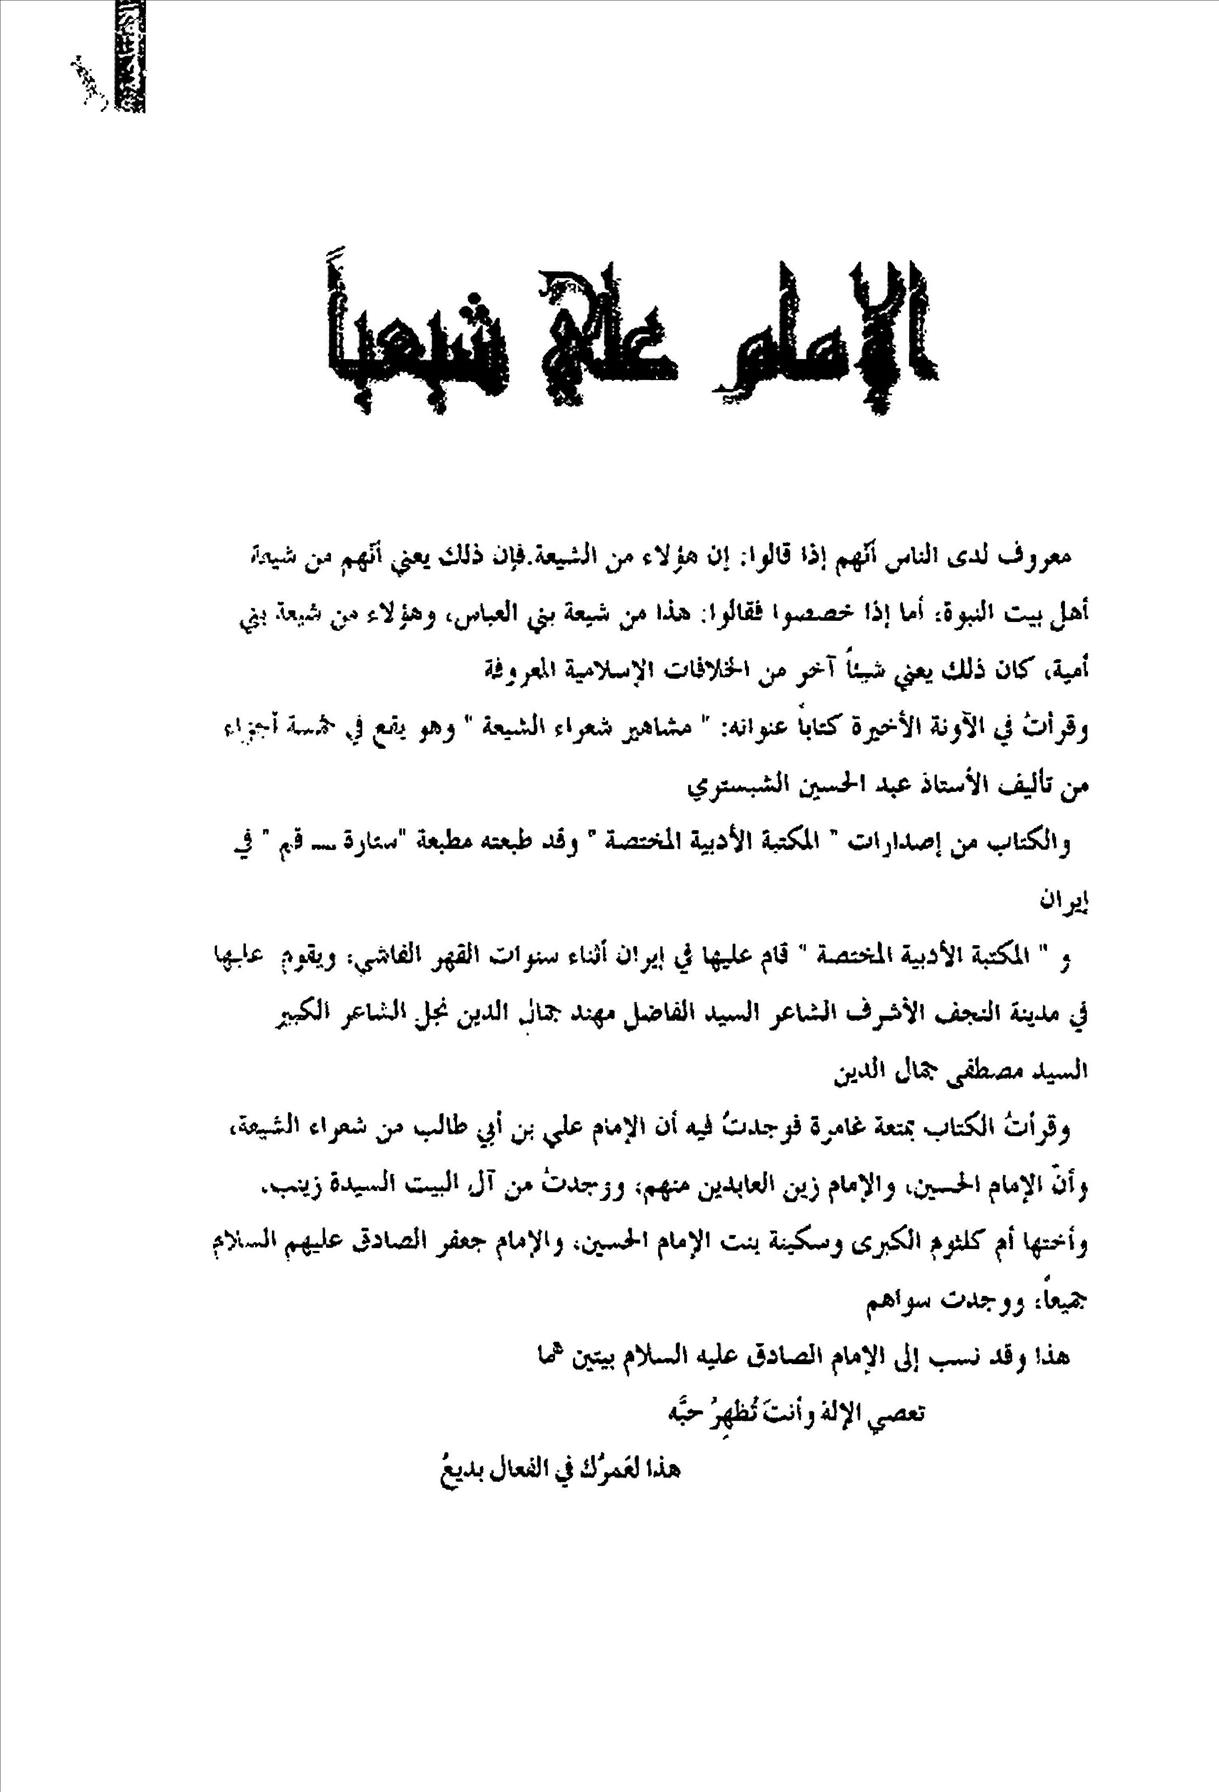 الإمام علي شيعياً
معروف لدى الناس أنّهم إذا قالوا: إن هؤلاء من الشيعة.فإن ذلك يعني أنّهم من شيعة
أهل بيت النبوة، أما إذا خصصوا فقالوا: هذا من شيعة بني العباس، وهؤلاء من شيعة بني
أمية، كان ذلك يعني شيئاً آخر من الخلافات الإسلامية المعروفة
وقرأتُ في الآونة الأخيرة كتاباً عنوانه: " مشاهير شعراء الشيعة " وهو يقع في خمسة أجزاء
من تأليف الأستاذ عبد الحسين الشبستري
والكتاب من إصدارات " المكتبة الأدبية المختصة " وقد طبعته مطبعة "ستارة ــ قم " في
إيران
و " المكتبة الأدبية المختصة " قام عليها في إيران أثناء سنوات القهر الفاشي، ويقوم عليها
في مدينة النجف الأشرف الشاعر السيد الفاضل مهند جمال الدين نجل الشاعر الكبير
السيد مصطفى جمال الدين
وقرأتُ الكتاب بمتعة غامرة فوجدتُ فيه أن الإمام علي بن أبي طالب من شعراء الشيعة،
وأنّ الإمام الحسين، والإمام زين العابدين منهم، ووجدتُ من آل البيت السيدة زينب،
وأختها أم كلثوم الكبرى وسكينة بنت الإمام الحسين، والإمام جعفر الصادق عليهم السلام
جميعاً، ووجدت سواهم
هذا وقد نسب إلى الإمام الصادق عليه السلام بيتين هما
تعصي الإلهَ وأنتَ تُظهِرُ حبَّه
هذا لعَمرُك في الفعال بديعُ